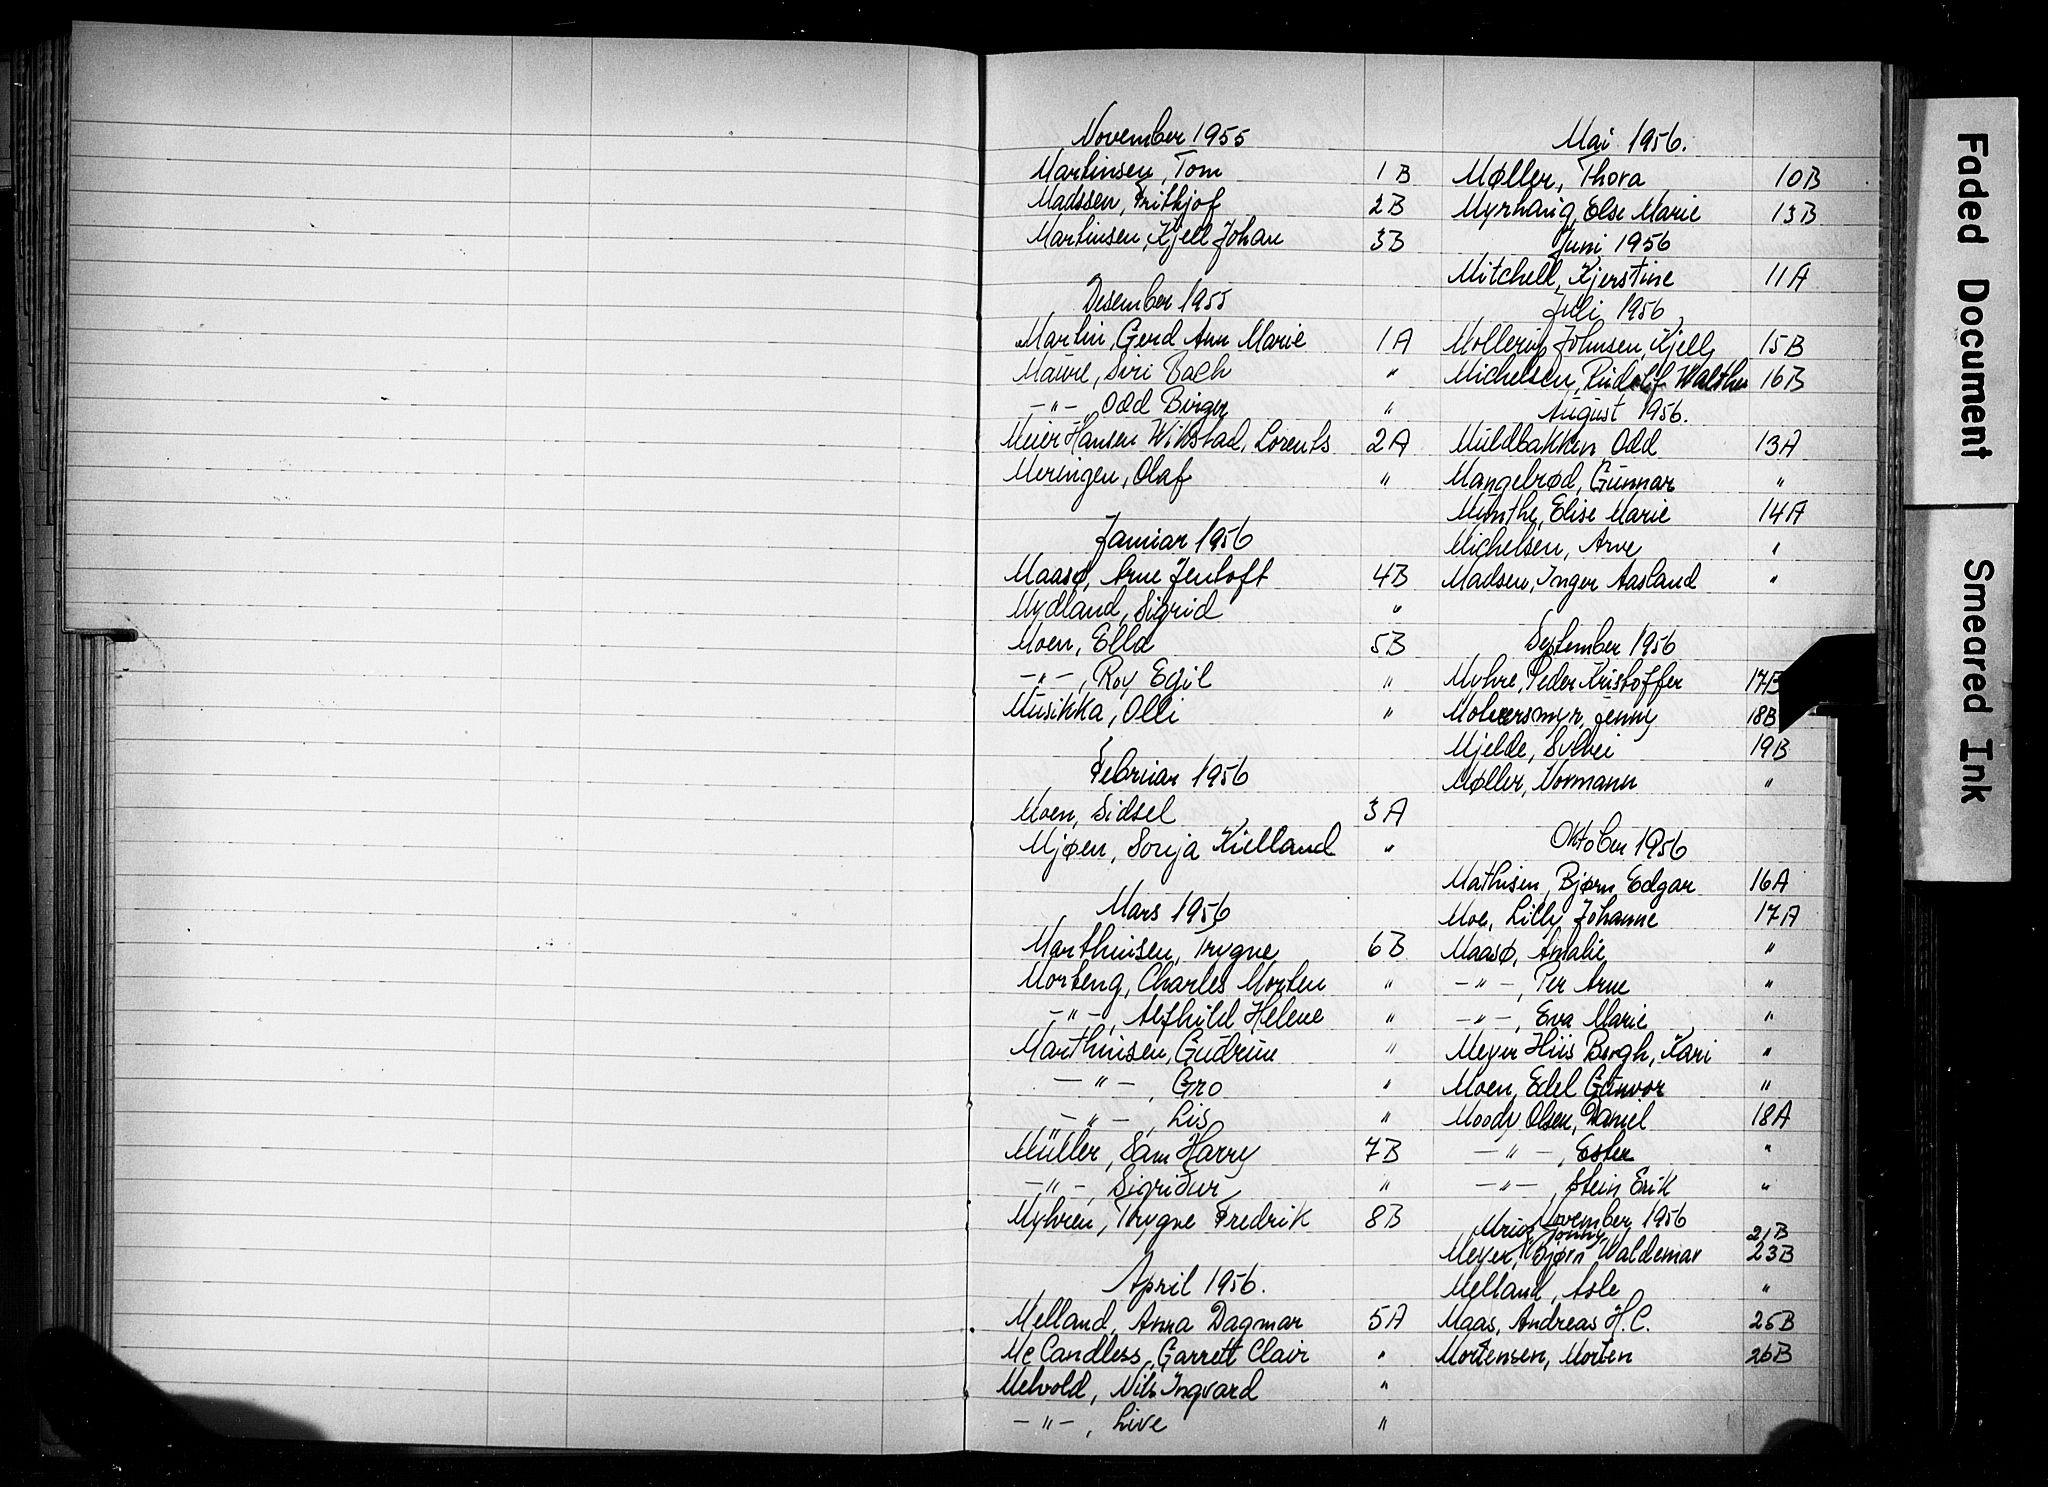 November 1955
Martinsen, Tom 1B
Madssen, Frithjof 2B
Martinsen, Kjell Johan 3B
Desember 1955
Martin, Gerd Ann Marie 1A
Maure, Siri Bach "
-"-, Odd Birger "
Meier Hansen Wikstad, Lorents 2A
Meringen, Olaf "
Januar 1956
Maasø, Arne Jentoft 4B
Mydland, Sigrid "
Moen, Ella 5B
-"-, Roy Egil "
Musikka, Olli "
Februar 1956
Moen, Sidsel 3A
Mjøen, Sonja Kielland "
Mars 1956
Marthinsen, Trygve 6B
Morteng, Charles Morten "
-"-, Alfhild Helene "
Marthinsen, Gudrun "
-"-, Gro "
-"-, Lis "
Müller, Sam Harry 7B
-"-, Sigridur "
Myhren, Trygve Fredrik 8B
April 1956.
Melland, Anna Dagmar 5A
Mc Candless, Garrett Clair "
Melvold, Nils Ingvard "
-"-, Live "
Mai 1956.
Møller, Thora 10B
Myrhaug, Else Marie 13B
Juni 1956
Mitchell, Kjerstine 11A
Juli 1956
Mollerup Johnsen, Kjell 15B
Michelsen, Rudolf Walther 16B
August 1956.
Muldbakken Odd 13A
Mangelrød, Gunnar "
Munthe, Elise Marie 14A
Michelsen, Arve "
Madsen, Inger Aasland "
September 1956
Myhre, Peder Kristoffer 17B
Molversmyr, Jenny 18B
Mjelde, Solvei 19B
Møller, Normann "
Oktober 1956
Mathisen, Bjørn Edgar 16A
Moe, Lilly Johanne 17A
Maasø, Amalie "
-"-, Per Arne "
-"-, Eva Marie "
Meyer Hiis Bergh, Kari "
Moen, Edel Gunvor "
Moody Olsen, Daniel 18A
-"-, Ester "
-"-, Stein Erik "
November 1956
Tonny 21B
Meyer, Bjørn Waldemar 23B
Melland, Asle "
Maas, Andreas H.C. 25B
Mortensen, Morten 26B
Faded Document
Smeared Ink